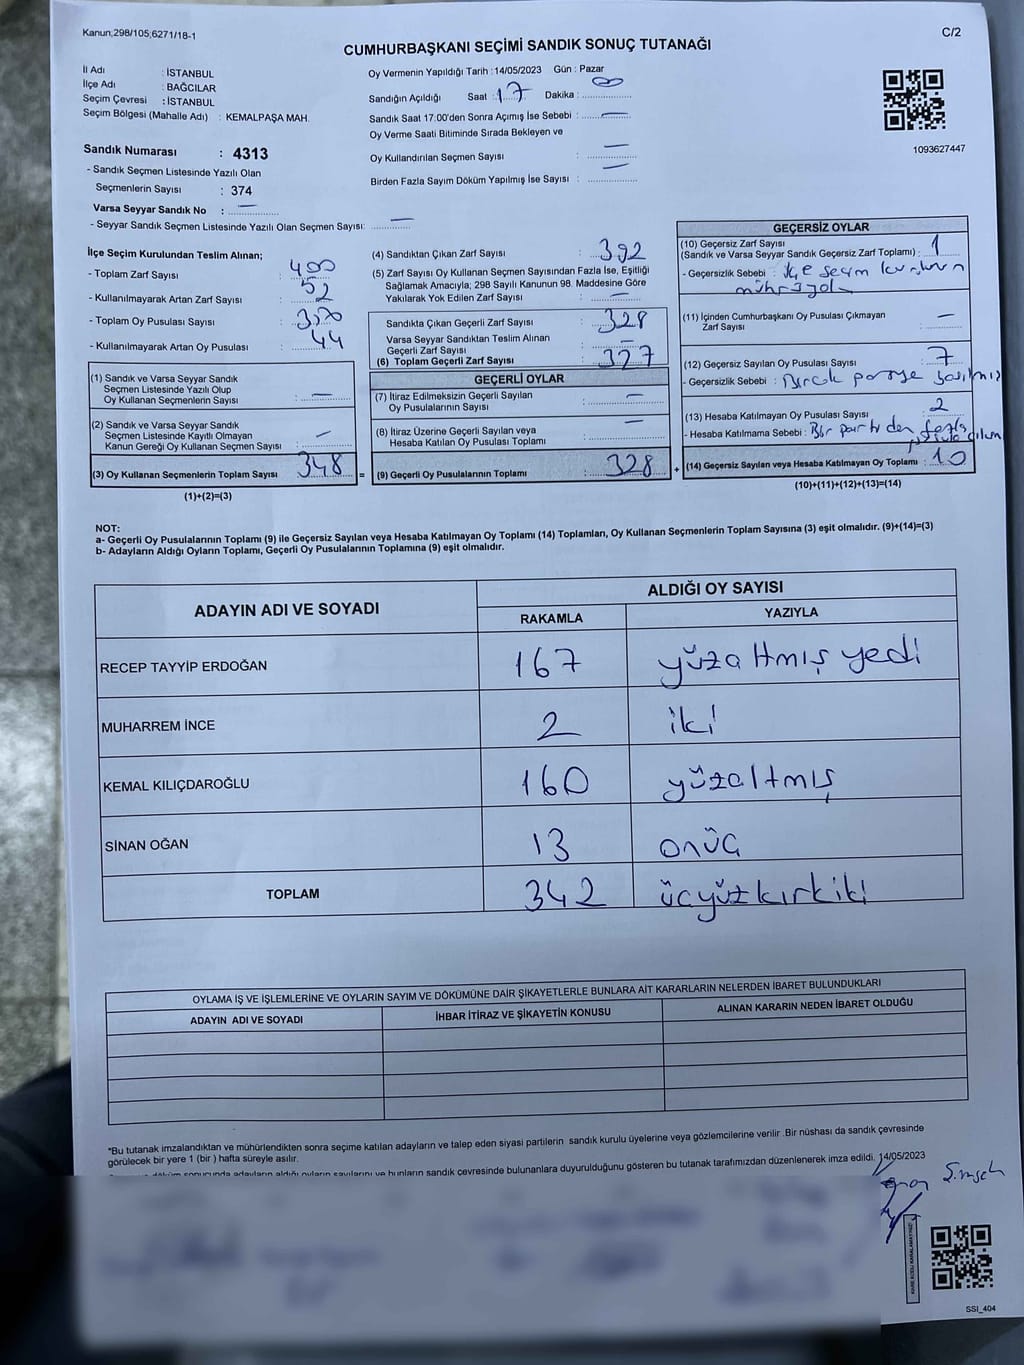 Kanun;298/105;6271/18-1
C/2
CUMHURBAŞKANI SEÇİMİ SANDIK SONUÇ TUTANAĞI
İl Adı : İSTANBUL
İlçe Adı : BAĞCILAR
Seçim Çevresi : İSTANBUL
Seçim Bölgesi (Mahalle Adı) : KEMALPAŞA MAH.
Oy Vermenin Yapıldığı Tarih :14/05/2023 Gün : Pazar
Sandığın Açıldığı Saat : 17 Dakika :
Sandık Saat 17:00'den Sonra Açımış İse Sebebi : —
Oy Verme Saati Bitiminde Sırada Bekleyen ve
Oy Kullandırılan Seçmen Sayısı : —
Birden Fazla Sayım Döküm Yapılmış İse Sayısı : —
1093627447
Sandık Numarası : 4313
- Sandık Seçmen Listesinde Yazılı Olan
Seçmenlerin Sayısı : 374
Varsa Seyyar Sandık No : —
- Seyyar Sandık Seçmen Listesinde Yazılı Olan Seçmen Sayısı: —
İlçe Seçim Kurulundan Teslim Alınan;
- Toplam Zarf Sayısı : 400
- Kullanılmayarak Artan Zarf Sayısı : 52
- Toplam Oy Pusulası Sayısı :
- Kullanılmayarak Artan Oy Pusulası : 44
(1) Sandık ve Varsa Seyyar Sandık
Seçmen Listesinde Yazılı Olup
Oy Kullanan Seçmenlerin Sayısı : —
(2) Sandık ve Varsa Seyyar Sandık
Seçmen Listesinde Kayıtlı Olmayan
Kanun Gereği Oy Kullanan Seçmen Sayısı : —
(3) Oy Kullanan Seçmenlerin Toplam Sayısı : 348 =
(1)+(2)=(3)
(4) Sandıktan Çıkan Zarf Sayısı : 392
(5) Zarf Sayısı Oy Kullanan Seçmen Sayısından Fazla İse, Eşitliği
Sağlamak Amacıyla; 298 Sayılı Kanunun 98. Maddesine Göre
Yakılarak Yok Edilen Zarf Sayısı : —
Sandıkta Çıkan Geçerli Zarf Sayısı : 328
Varsa Seyyar Sandıktan Teslim Alınan
Geçerli Zarf Sayısı : —
(6) Toplam Geçerli Zarf Sayısı : 327
GEÇERLİ OYLAR
(7) İtiraz Edilmeksizin Geçerli Sayılan
Oy Pusulalarının Sayısı : —
(8) İtiraz Üzerine Geçerli Sayılan veya
Hesaba Katılan Oy Pusulası Toplamı : —
(9) Geçerli Oy Pusulalarının Toplamı : 328 +
GEÇERSİZ OYLAR
(10) Geçersiz Zarf Sayısı
(Sandık ve Varsa Seyyar Sandık Geçersiz Zarf Toplamı) : 1
- Geçersizlik Sebebi : ilçe seçim
(11) İçinden Cumhurbaşkanı Oy Pusulası Çıkmayan
Zarf Sayısı : —
(12) Geçersiz Sayılan Oy Pusulası Sayısı : 7
- Geçersizlik Sebebi : Bircok
(13) Hesaba Katılmayan Oy Pusulası Sayısı : 2
- Hesaba Katılmama Sebebi : Bir partiden fazla
(14) Geçersiz Sayılan veya Hesaba Katılmayan Oy Toplamı : 10
(10)+(11)+(12)+(13)=(14)
NOT:
a- Geçerli Oy Pusulalarının Toplamı (9) ile Geçersiz Sayılan veya Hesaba Katılmayan Oy Toplamı (14) Toplamları, Oy Kullanan Seçmenlerin Toplam Sayısına (3) eşit olmalıdır. (9)+(14)=(3)
b- Adayların Aldığı Oyların Toplamı, Geçerli Oy Pusulalarının Toplamına (9) eşit olmalıdır.
ADAYIN ADI VE SOYADI
ALDIĞI OY SAYISI
RAKAMLA YAZIYLA
RECEP TAYYİP ERDOĞAN 167 yüzaltmış yedi
MUHARREM İNCE 2 iki
KEMAL KILIÇDAROĞLU 160 yüzaltmış
SİNAN OĞAN 13 onüç
TOPLAM 342 üçyüzkırkiki
OYLAMA İŞ VE İŞLEMLERİNE VE OYLARIN SAYIM VE DÖKÜMÜNE DAİR ŞİKAYETLERLE BUNLARA AİT KARARLARIN NELERDEN İBARET BULUNDUKLARI
ADAYIN ADI VE SOYADI İHBAR İTİRAZ VE ŞİKAYETİN KONUSU ALINAN KARARIN NEDEN İBARET OLDUĞU
*Bu tutanak imzalandıktan ve mühürlendikten sonra seçime katılan adayların ve talep eden siyasi partilerin sandık kurulu üyelerine veya gözlemcilerine verilir .Bir nüshası da sandık çevresinde
görülecek bir yere 1 (bir ) hafta süreyle asılır.
döküm sonucunda adayların aldığı oyların sayılarını ve bunların sandık çevresinde bulunanlara duyurulduğunu gösteren bu tutanak tarafımızdan düzenlenerek imza edildi. 14/05/2023
SSI_404